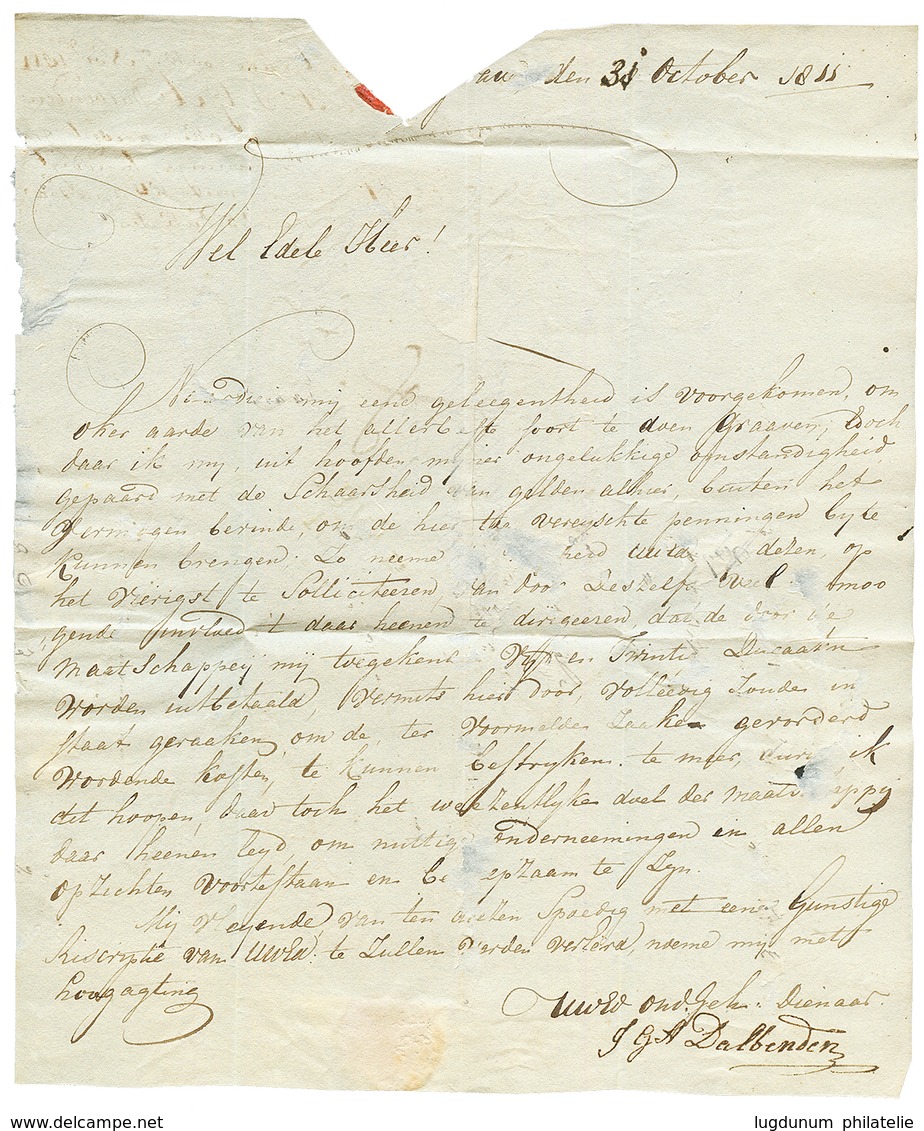 den 31 October 1811
Wel Edele Heer!
mij eene geleegentheid is voorgekomen, om
oker aarde van het allerbeste soort te doen Graaven, Doch
daar ik mij, uit hoofden mijner ongelukkige omstandigheid,
gepaard met de Schaarsheid van gelden alhier, buiten het
Vermogen bevinde, om de hier toe vereyschte penningen by te
kunnen brengen; Zo neeme heid UWEd dezen, op
het Vierigst te Solliciteeren van door Deszelfs veel vermoo
gende invloed 't daar heenen te dirigeeren, dat de door de
Maatschappeij mij toegekend Vyf en Twintig Ducaaten
Worden uitbetaald, Vermits hier door, volleedig Zoude in
staat geraaken, om de, ter Voormelde Zaaken gevorderd
Wordende kosten, te kunnen bestryken. te meer, ik
dit hoopen, daar toch het weezentlyke doel der Maatschappij
daar heenen leyd, om nuttige onderneemingen in allen
opzichten voortestaan en te Zyn.
Mij vleyende, van ten deezen Spoedig met eene Gunstige
Riscriptie van UWEd. te Zullen werden vereerd, noeme mij met
hoogagting
UWEd ond. Geh. Dienaar.
J G A Dalbenden
www.delcampe.net
lugdunum philatelie